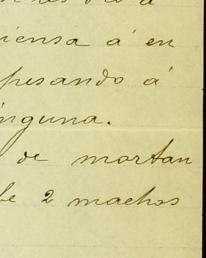 iensa á en
pesando á
inguna.
de mortan
be 2 machos